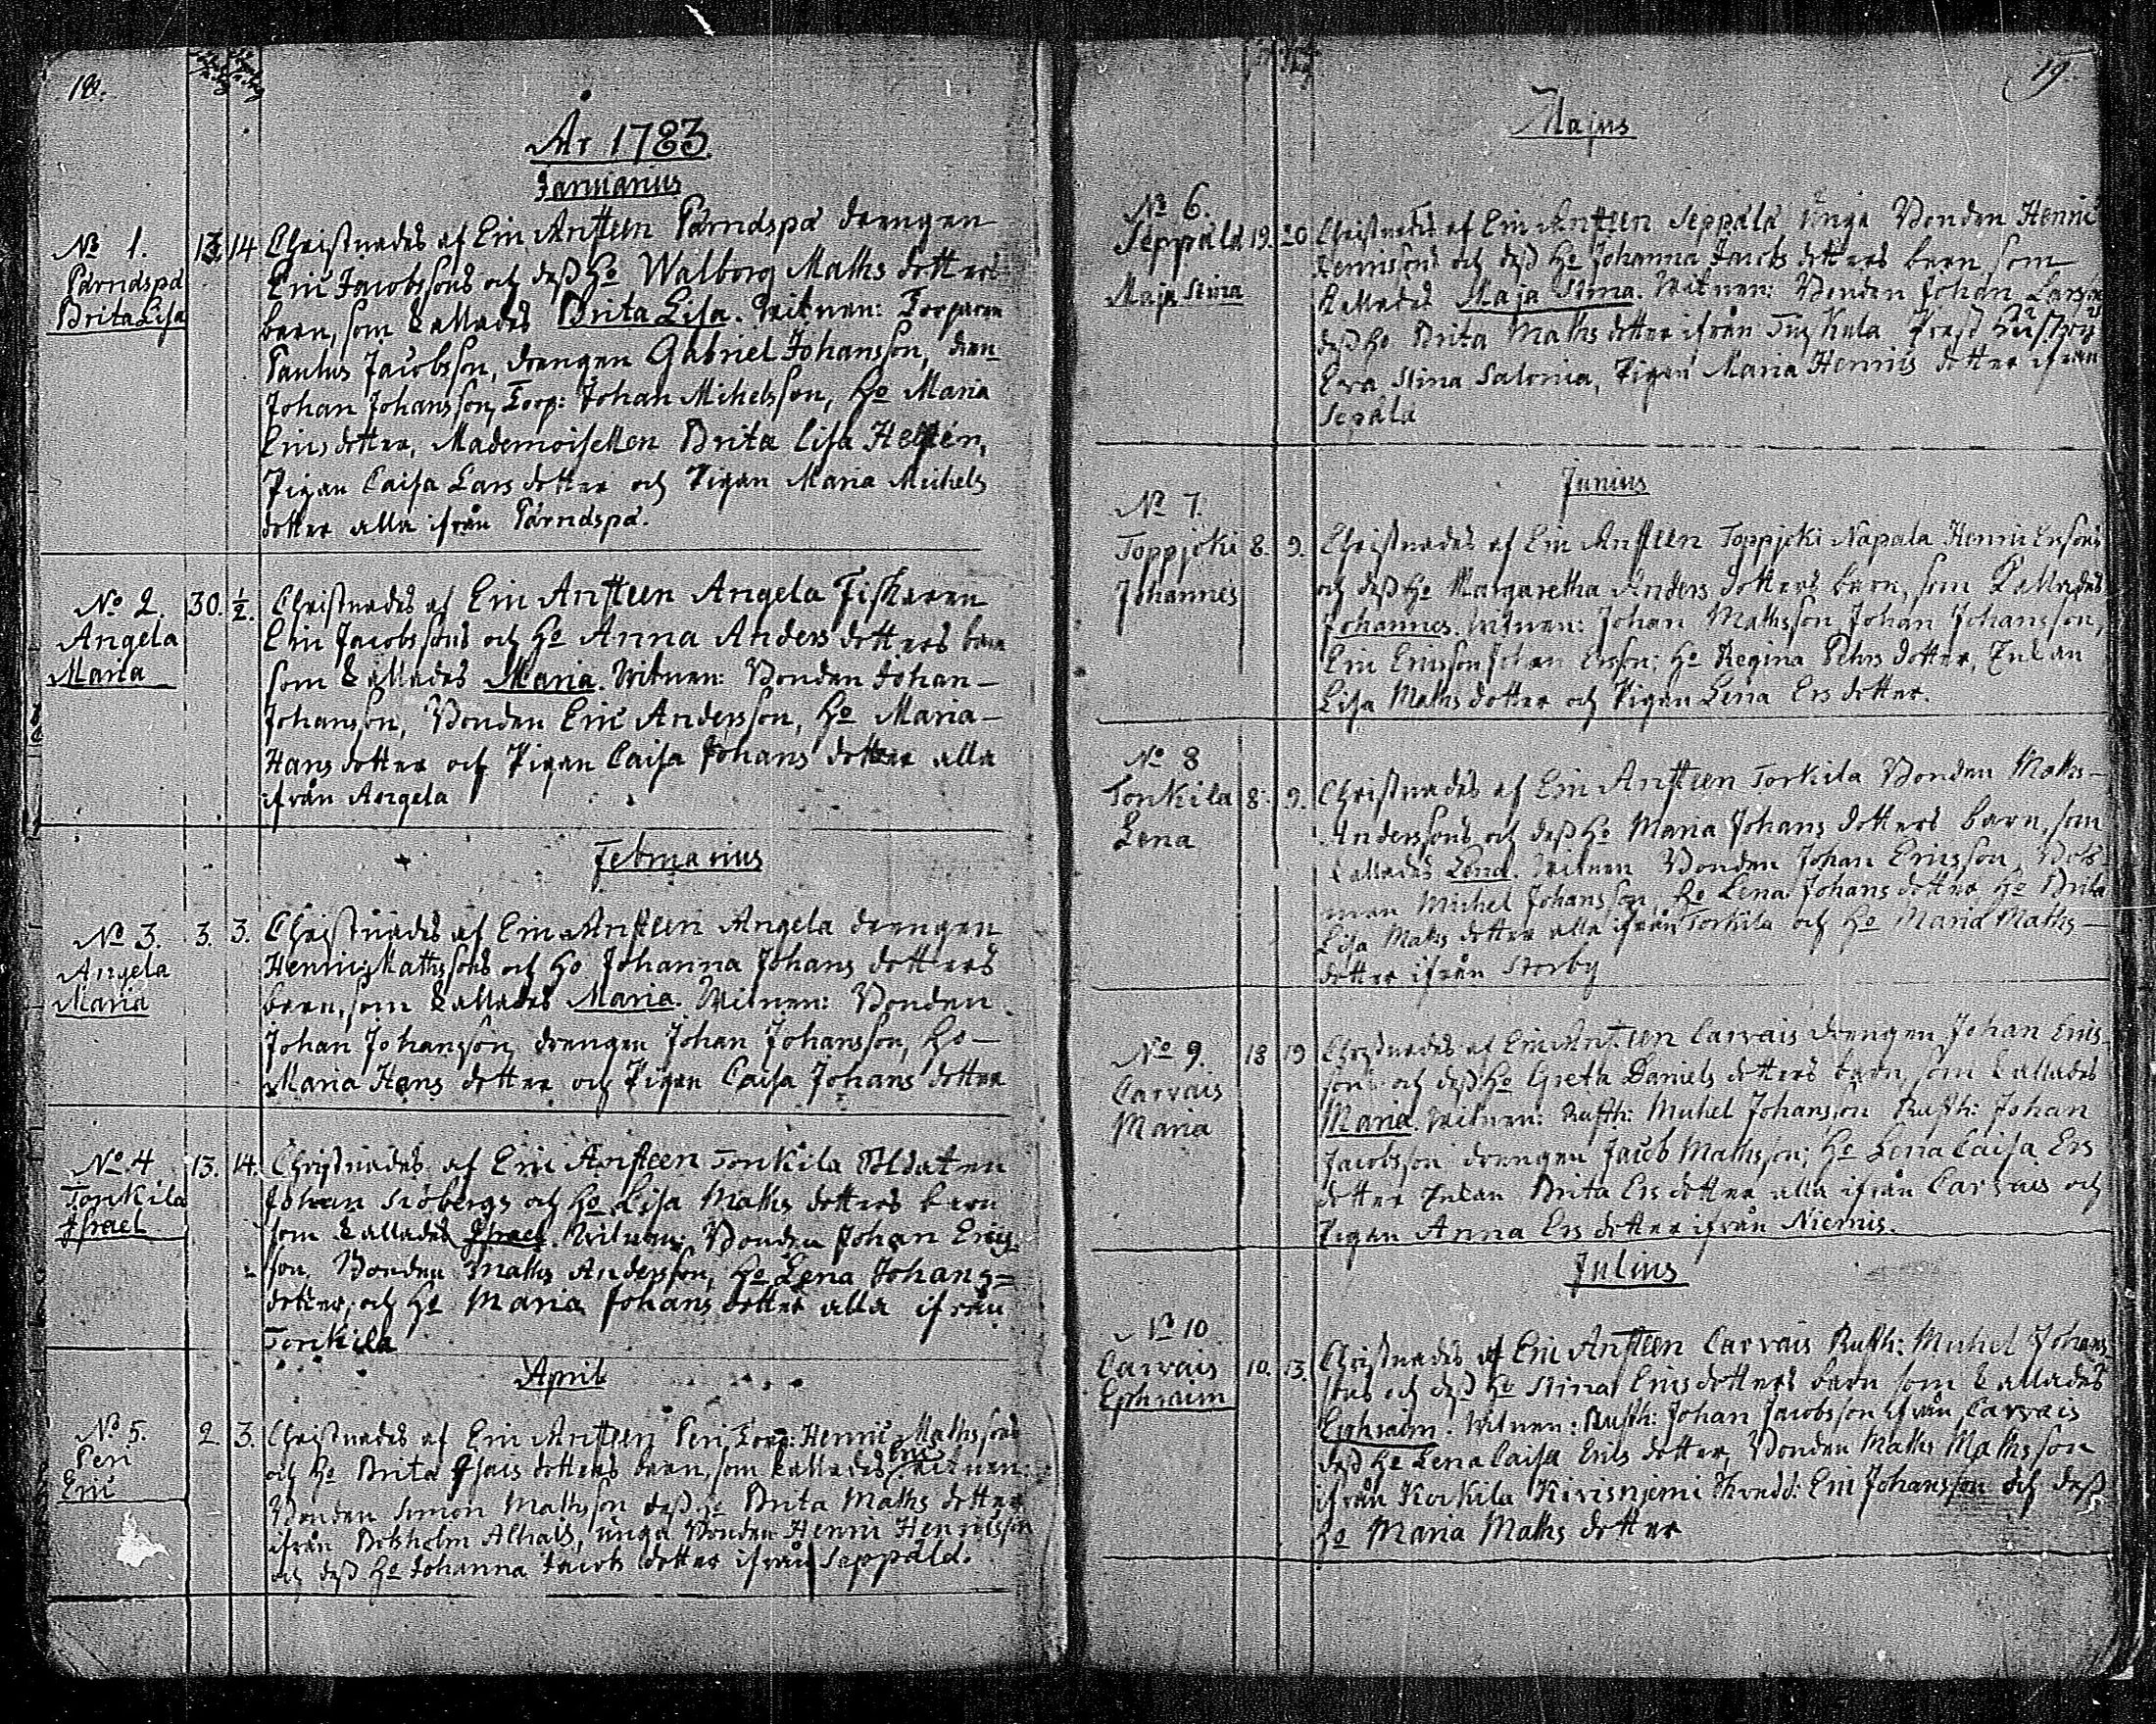 18.
År 1783.
Januarius
No 1. 13. 14 Christnades af Eric Ansteen Pärndspä drengen
Pärndspä Eric Jacobssons och dess Ho Walborg Maths dotters
Brita Lisa barn, som kallades Brita Lisa. Witnen: Torparen
Paulus Jacobsson, drengen Gabriel Johansson, dren
Johan Johansson, Torp: Johan Michelsson, Ho Maria
Erics dotter, Mademoisellen Brita Lisa
Pigan Caisa Lars dotter och Pigan Maria Michels
dotter alla ifrån Pärndspä.
No 2. 30. ½. Christnades af Eric Ansteen Angela Fiskaren
Angela Eric Jacobssons och Ho Anna Anders dotters barn
Maria som kallades Maria. Witnen: Bonden Johan
Johansson, Bonden Eric Andersson, Ho Maria
Hans dotter och Pigan Caisa Johans dotter alla
ifrån Angela
Februarius
No 3. 3. 3. Christnades af Eric Ansteen Angela drengen
Angela Henric Mathssons och Ho Johanna Johans dotters
Maria barn, som kallades Maria. Witnen: Bonden
Johan Johansson, drengen Johan Johansson, Ho
Maria Hans dotter och Pigan Caisa Johans dotter
No 4 13. 14. Christnades af Eric Ansteen Torkila Soldaten
Torkila Johan Siöbergs och Ho Lisa Maths dotters barn
Israel som kallades Israel. Witnen: Bonden Johan Erics
son, Bonden Maths Andersson, Ho Lena Johans
dotter, och Ho Maria Johans dotter alla ifrån
Torkila
April
No 5. 2. 3. Christnades af Eric Ansteen Peri Torp: Henric Mathssons
Peri och Ho Brita Isacs dotters barn, som kallades Eric witnen:
Eric Bonden Simon Mathsson dess Ho Brita Maths dotter
ifrån Alhais, unga Bonden Henric Henricsson
och dess Ho Johanna Jacobs dotter ifrån Seppälä.
19
Majus
No 6.
Seppälä 19. 20 Christnades af Eric Ansteen Seppälä Unga Bonden Henric
Henrissons och dess Ho Johanna Jacobs dotters barn, som
Maja Stina kallades Maja Stina. Witnen: Bonden Johan Larsson
dess Ho Brita Maths dotter ifrån
Eva Stina Salonia, Pigan Maria Henrics dotter ifrån
Sepälä
Junius
No 7.
Toppjoki 8. 9. Christnades af Eric Ansteen Toppjoki Napala Henric Ersons
Johannes och dess Ho Margaretha Anders dotters barn, som kallades
Johannes. Witnen: Johan Mathsson, Johan Johansson,
Eric Ericsson Johan Ersson; Ho Regina Pehrs dotter, Enkan
Lisa Maths dotter och Pigan Lena Ers dotter.
No 8
Torkila 8. 9. Christnades af Eric Ansteen Torkila Bonden Maths
Lena Anderssons och dess Ho Maria Johans dotters barn, som
kallades Lena. Witnen Bonden Johan Ericsson, Båts
man Michel Johansson, Ho Lena Johans dotter Ho Brita
Lisa Maths dotter alla ifrån Torkila och Ho Maria Maths
dotter ifrån Storby
No 9. 18 19 Christnades af Eric Ansteen Carvais drengen Johan Erics
Carvais sons och dess Ho Greta Daniels dotters barn, som kallades
Maria Maria. Witnen: Rusth: Michel Johansson Rusth: Johan
Jacobsson drengen Jacob Mathsson; Ho Lena Caisa Ers
dotter Enkan Brita Ers dotter alla ifrån Carvais och
Pigan Anna Ers dotter ifrån Niemis.
Julius
No 10
Carvais 10. 13. Christnades af Eric Ansteen Carvais Rusth: Michel Johans
Ephraim sons och dess Ho Stina Erics dotters barn som kallades
Ephraim. Witnen: Rusth: Johan Jacobsson ifrån Carvais
dess Ho Lena Caisa Erics dotter, Bonden Maths Mathsson
ifrån Korkila Kirisniemi Eric Johansson och dess
Ho Maria Maths dotter